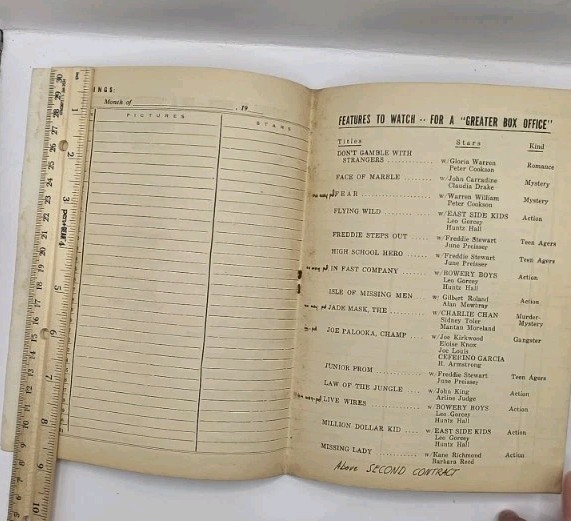 INGS:
Month of , 19
PICTURES STARS
FEATURES TO WATCH -- FOR A "GREATER BOX OFFICE"
Titles Stars Kind
DON'T GAMBLE WITH
STRANGERS w/Gloria Warren Romance
Peter Cookson
FACE OF MARBLE w/John Carradine Mystery
Claudia Drake
FEAR w/Warren William Mystery
Peter Cookson
FLYING WILD w/EAST SIDE KIDS Action
Leo Gorcey
Huntz Hall
FREDDIE STEPS OUT w/Freddie Stewart Teen Agers
June Preisser
HIGH SCHOOL HERO w/Freddie Stewart Teen Agers
June Preisser
IN FAST COMPANY w/BOWERY BOYS Action
Leo Gorcey
Huntz Hall
ISLE OF MISSING MEN w/Gilbert Roland Action
Alan Mowbray
JADE MASK, THE w/CHARLIE CHAN Murder-
Sidney Toler Mystery
Mantan Moreland
JOE PALOOKA, CHAMP w/Joe Kirkwood Gangster
Eloise Knox
Joe Louis
CEFERINO GARCIA
H. Armstrong
JUNIOR PROM w/Freddie Stewart Teen Agers
June Preisser
LAW OF THE JUNGLE w/John King Action
Arline Judge
LIVE WIRES w/BOWERY BOYS Action
Leo Gorcey
Huntz Hall
MILLION DOLLAR KID w/EAST SIDE KIDS Action
Leo Gorcey
Huntz Hall
MISSING LADY w/Kane Richmond Action
Barbara Reed
Above SECOND CONTRACT